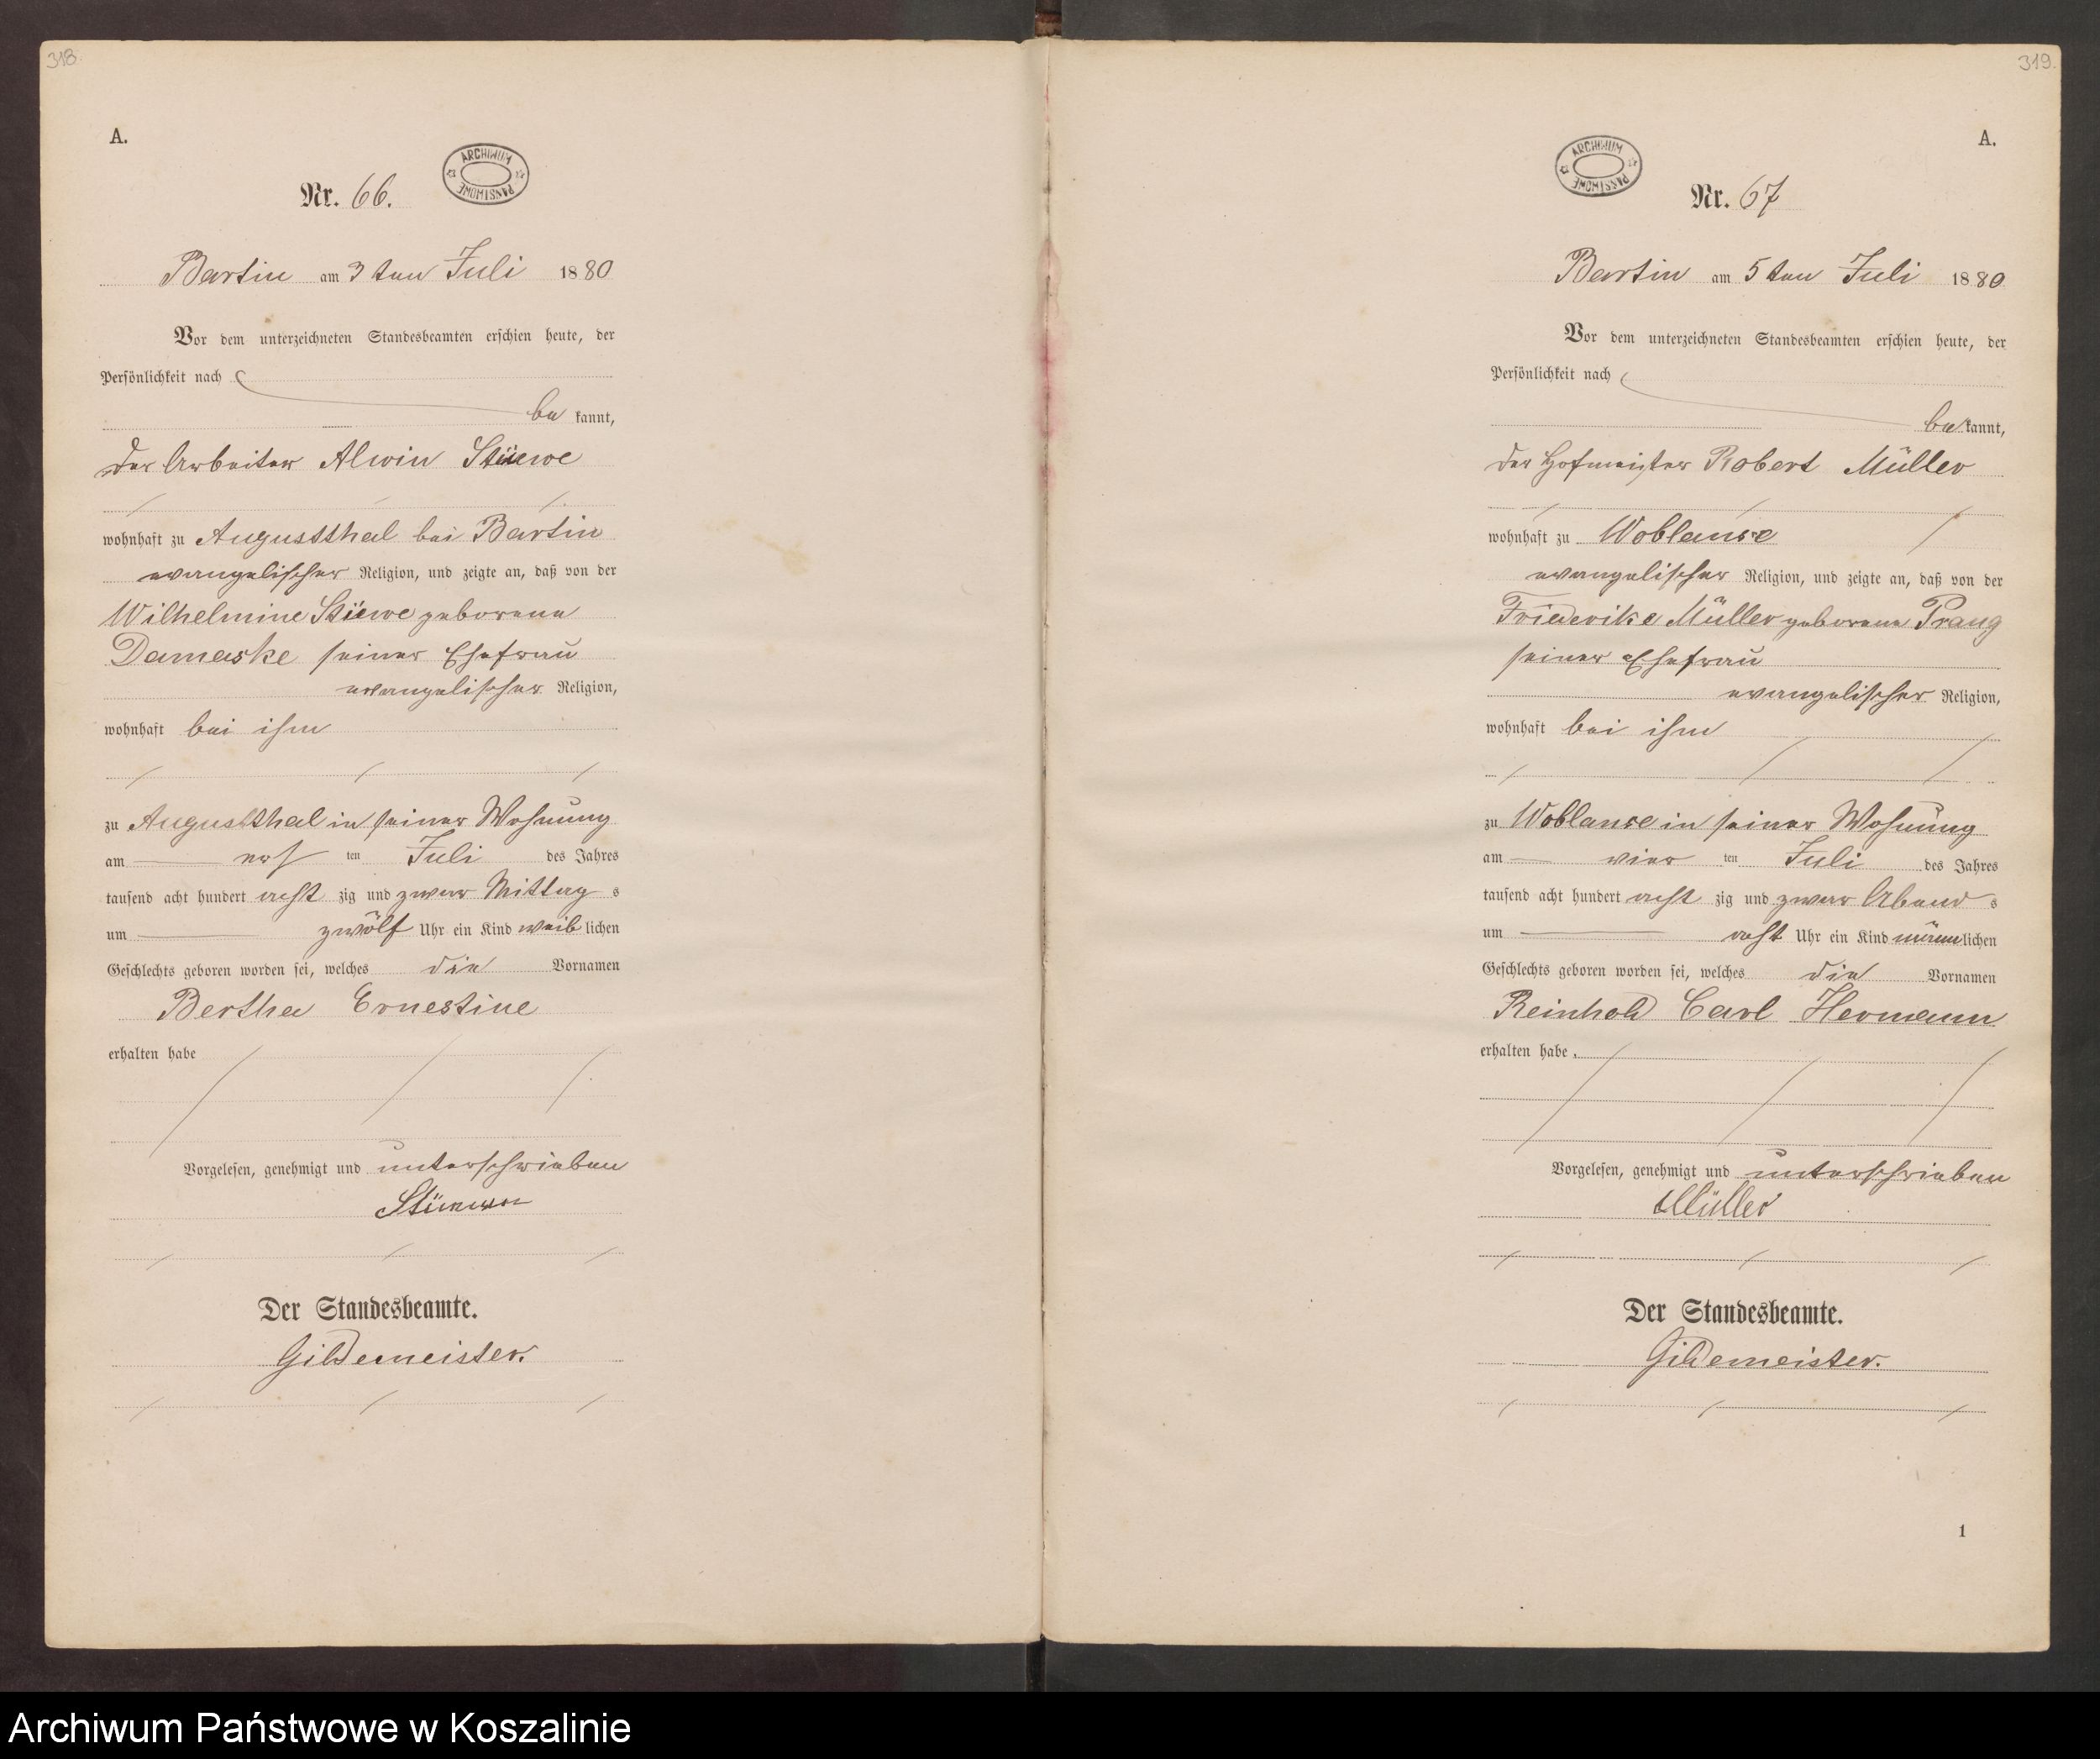 318.
A.
ARCHIWUM PAŃSTWOWE
Nr. 66.
Bartin am 3 ten Juli 1880
Vor dem unterzeichneten Standesbeamten erschien heute, der
Persönlichkeit nach
be kannt,
der Arbeiter Alwin Stüwe
wohnhaft zu Augustthal bei Bartin
evangelischer Religion, und zeigte an, daß von der
Wilhelmine Stüwe geborene
Damaske seiner Ehefrau
evangelischer Religion,
wohnhaft bei ihm
zu Augustthal in seiner Wohnung
am ers ten Juli des Jahres
tausend acht hundert acht zig und zwar Mittag s
um zwölf Uhr ein Kind weib lichen
Geschlechts geboren worden sei, welches die Vornamen
Bertha Ernestine
erhalten habe
Vorgelesen, genehmigt und unterschrieben
Der Standesbeamte.
Gildemeister.
319.
A.
ARCHIWUM PAŃSTWOWE
Nr. 67
Bartin am 5 ten Juli 1880
Vor dem unterzeichneten Standesbeamten erschien heute, der
Persönlichkeit nach
be kannt,
der Hofmeister Robert Müller
wohnhaft zu Woblanse
evangelischer Religion, und zeigte an, daß von der
Friederike Müller geborene Prang
seiner Ehefrau
evangelischer Religion,
wohnhaft bei ihm
zu Woblanse in seiner Wohnung
am vier ten Juli des Jahres
tausend acht hundert acht zig und zwar Abend s
um acht Uhr ein Kind männlichen
Geschlechts geboren worden sei, welches die Vornamen
Reinhold Carl Hermann
erhalten habe.
Vorgelesen, genehmigt und unterschrieben
Müller
Der Standesbeamte.
Gildemeister.
1
Archiwum Państwowe w Koszalinie